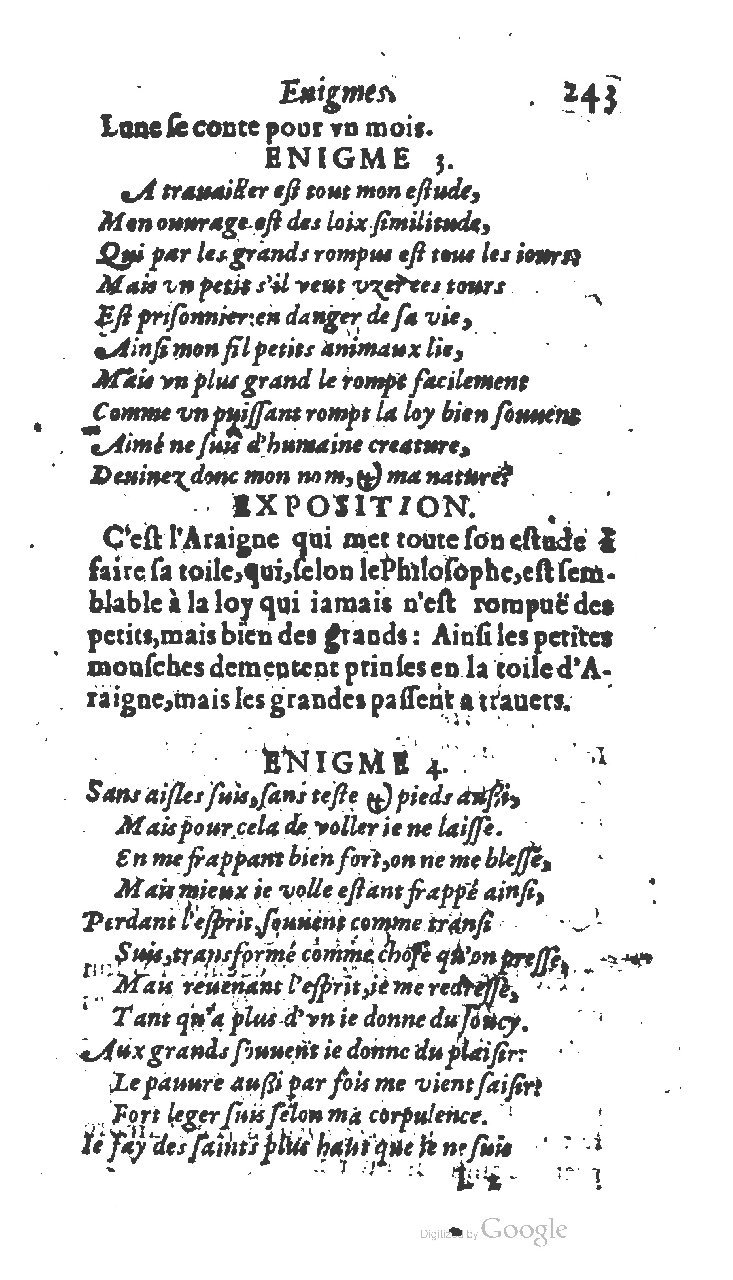 Enigmes. 243
Lune ſe conte pour vn mois.
ENIGME 3.
A trauailler eſt tout mon eſtude,
Mon ouurage eſt des loix ſimilitude,
Qui par les grands rompus eſt tous les iours:
Mais vn petit s'il veut vzer ces tours
Eſt priſonnier: en danger de ſa vie,
Ainſi mon fil petits animaux lie,
Mais vn plus grand le rompt facilement
Comme vn puiſſant rompt la loy bien ſouuent
Aimé ne ſuis d'humaine creature,
Deuinez donc mon nom, & ma nature?
EXPOSITION.
C'eſt l'Araigne qui met toute ſon eſtude à
faire ſa toile, qui, ſelon le Philoſophe, eſt ſem-
blable à la loy qui iamais n'eſt rompuë des
petits, mais bien des grands: Ainſi les petites
mouſches dementent prinſes en la toile d'A-
raigne, mais les grandes paſſent a trauers.
ENIGME 4.
Sans aiſles ſuis, ſans teſte & pieds auſſi,
Mais pour cela de voller ie ne laiſſe.
En me frappant bien fort, on ne me bleſſe,
Mais mieux ie volle eſtant frappé ainſi,
Perdant l'eſprit, ſouuent comme tranſi
Suis, transformé comme choſe qu'on preſſe,
Mais reuenant l'eſprit, ie me redreſſe,
Tant qu'a plus d'vn ie donne du ſoucy.
Aux grands ſouuent ie donne du plaiſir:
Le pauure auſſi par fois me vient ſaiſir:
Fort leger ſuis ſelon ma corpulence.
Ie fay des ſaints plus haut que ie ne ſuis
L 2
Digitized by Google